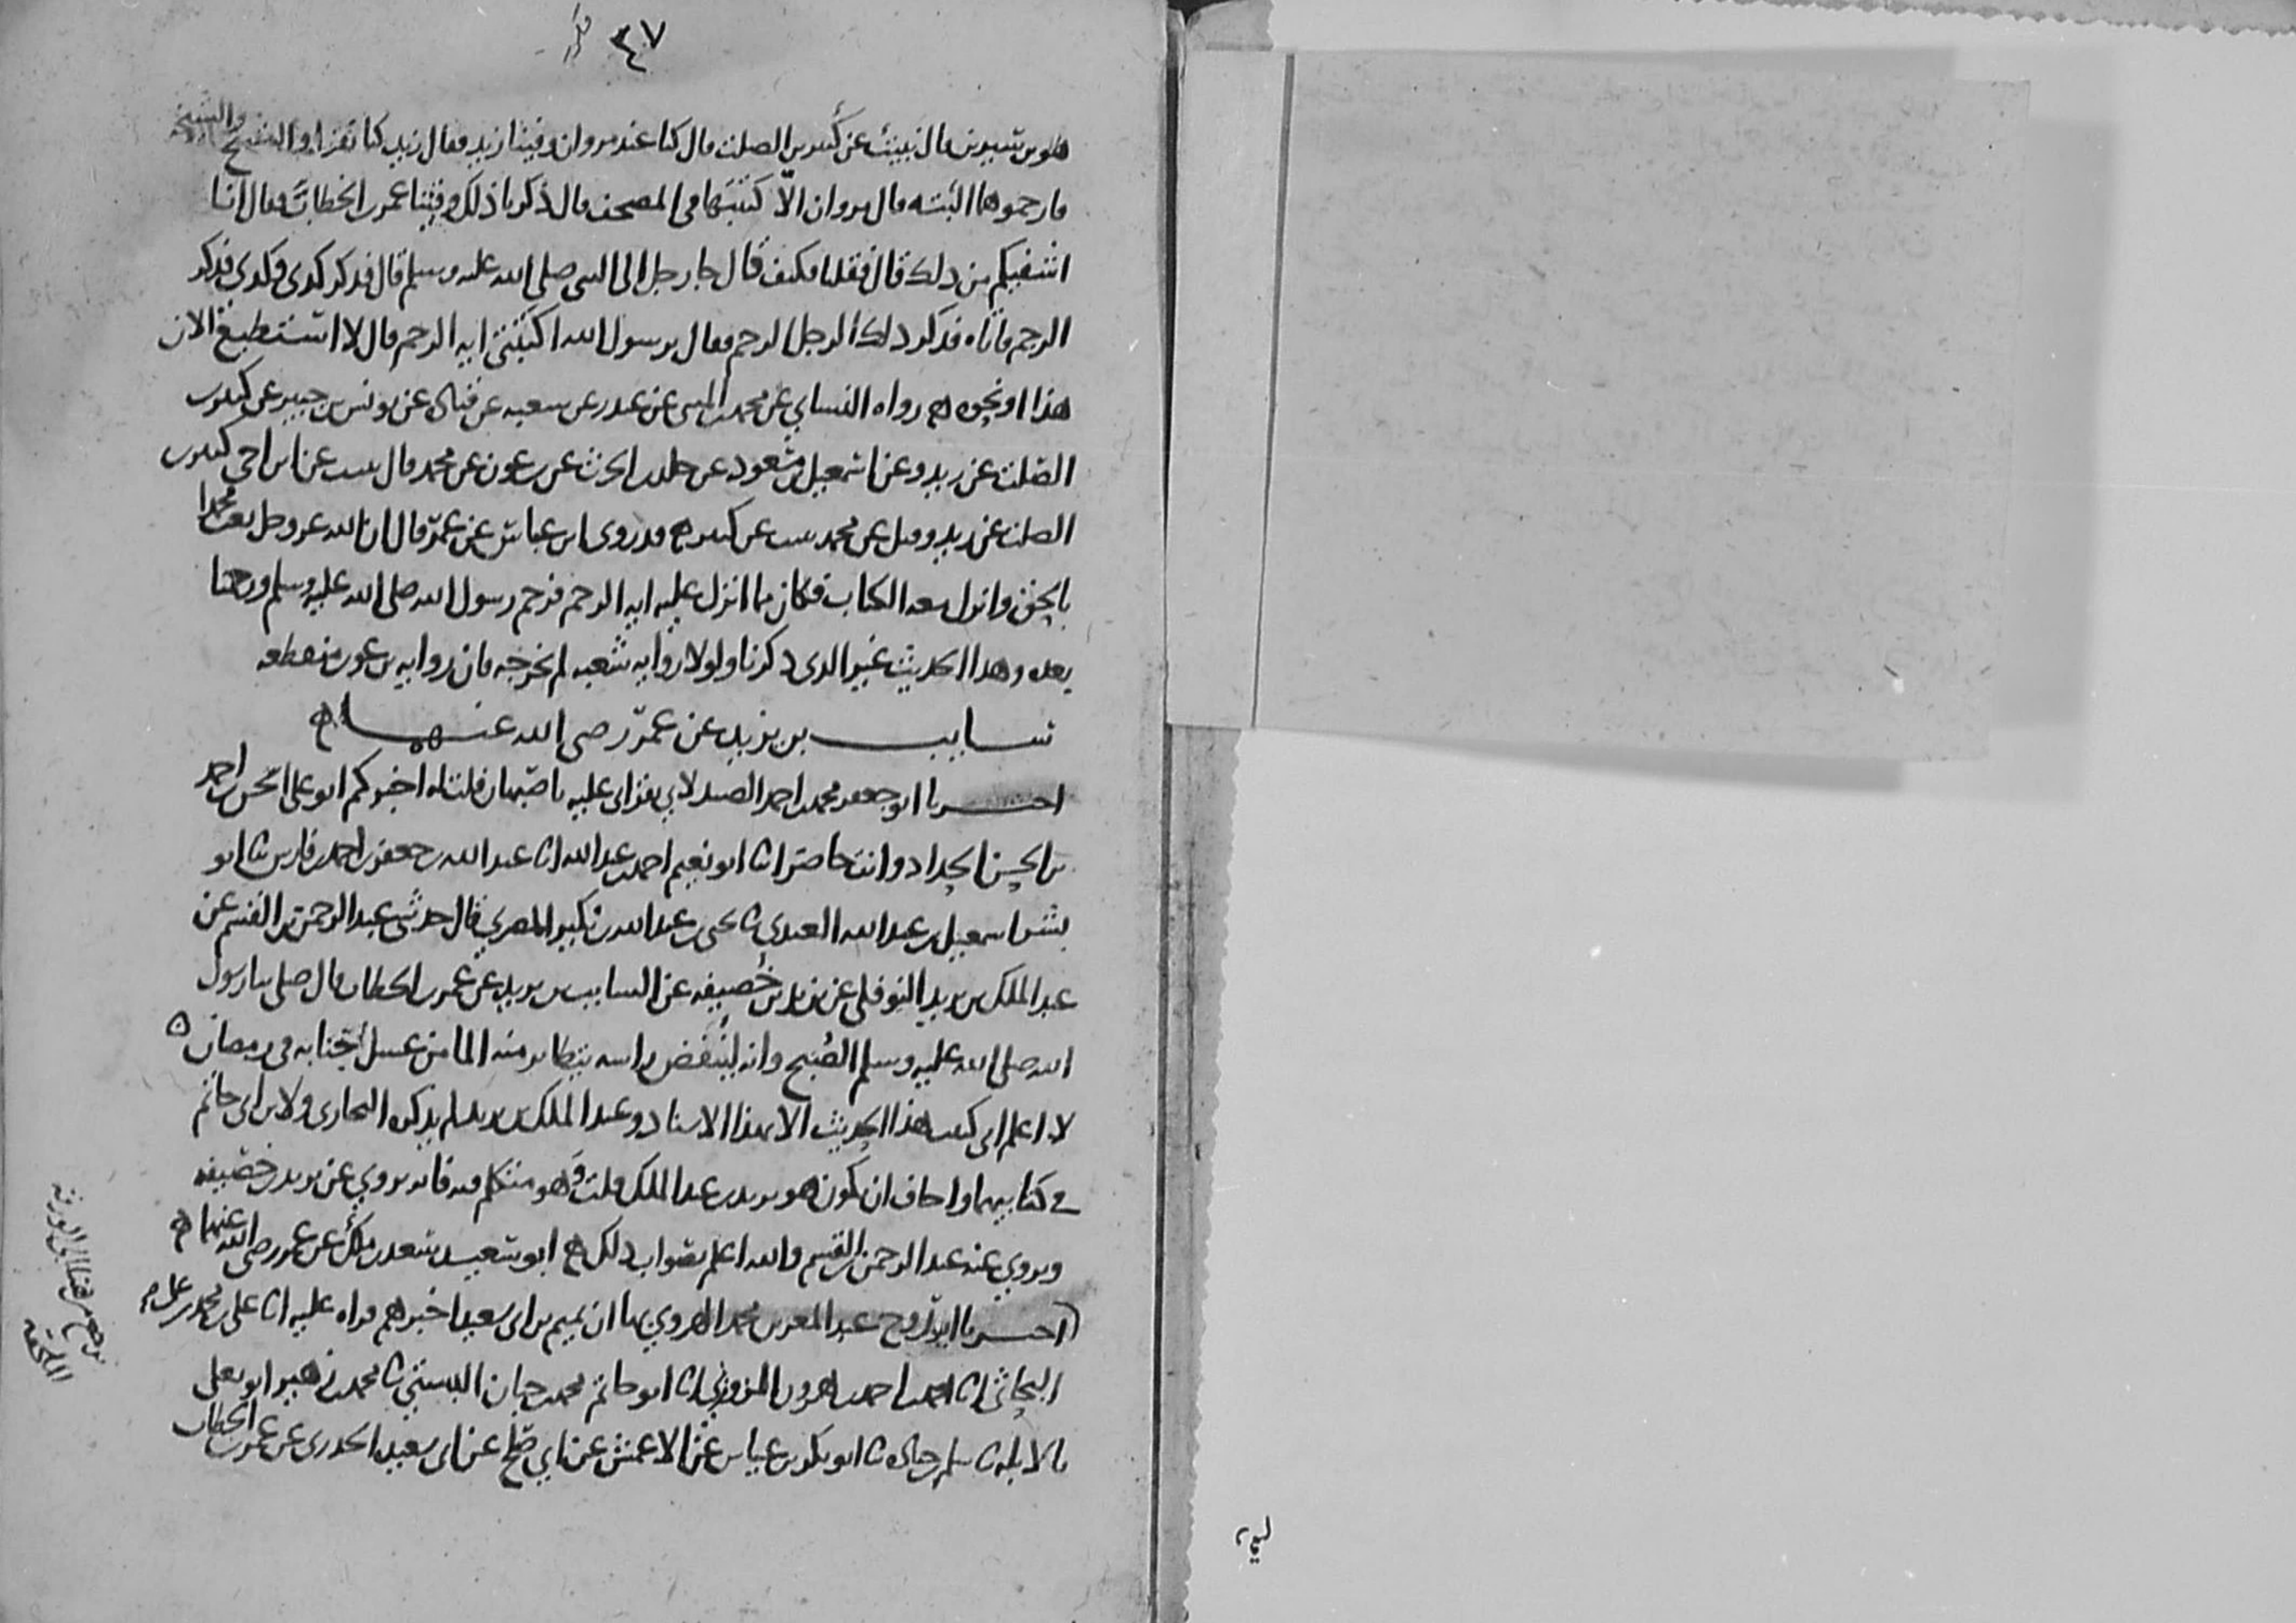 ٣٤٧
هو بن سيرين قال نبيت عن كثير بن الصلت قال كنا عند مروان وفينا زيد فقال زيد كنا نقرا والشيخ والشيخه
فارجموهما البته قال مروان الا كتبتها في المصحف قال ذكرنا ذلك وفينا عمر بن الخطاب فقال انا
اشفيكم من ذلك قال فقلنا فكيف قال جا رجل الى النبي صلى الله عليه وسلم قال فذكر كدى وكدى وذكر
الرجم فاتاه فذكر ذلك الرجل الرجم فقال يرسول الله اكتبني ايه الرجم قال لا استطيع الان
هذا او نحوه رواه النساي عن محمد بن المثنى عن غندر عن شعبه عن قتاده عن يونس بن جبير عن كثير بن
الصلت عن زيد وعن اسمعيل بن مسعود عن خلد بن الحرث عن بن عون عن محمد قال نبيت عن ابن اخي كثير بن
الصلت عن زيد وقيل عن محمد نبيت عن كثير وقد روى ابن عباس عن عمر قال ان الله عز وجل بعث محمدا
بالحق وانزل معه الكتاب فكان مما انزل عليه ايه الرجم فرجم رسول الله صلى الله عليه وسلم ورجمنا
بعده وهذا الحديث غير الذي ذكرنا ولولا روايه شعبه لم نخرجه فان روايه بن عون منقطعه
سايب بن يزيد عن عمر رضي الله عنهما
اخبرنا ابو جعفر محمد بن احمد الصيدلاني بقراتي عليه باصبهان قلت له اخبركم ابو علي الحسن بن احمد
بن الحسن الحداد وانت حاضر انا ابو نعيم احمد بن عبد الله انا عبد الله بن جعفر بن احمد بن فارس نا ابو
بشر اسمعيل بن عبد الله العبدي نا يحيى بن عبد الله بن بكير المصري قال حدثني عبد الرحمن بن القسم عن
عبد الملك بن يزيد النوفلي عن يزيد بن خصيفه عن السايب بن يزيد عن عمر بن الخطاب قال صلى بنا رسول
الله صلى الله عليه وسلم الصبح وانه لينفض راسه يتطاير منه الما من غسل الجنابه في رمضان
لا اعلم اني كتبت هذا الحديث الا بهذا الاسناد وعبد الملك بن يزيد لم يذكره البخاري ولا بن ابي حاتم
في كتابيهما واخاف ان يكون هو يزيد بن عبد الملك قلت وهو متكلم فيه فانه يروي عن يزيد بن خصيفه
ويروي عنه عبد الرحمن بن القسم والله اعلم بصواب ذلك ابو سعيد سعد بن ملك عن عمر رضي الله عنهما
اخبرنا ابو روح عبد المعز بن محمد الهروي بها ان تميم بن ابي سعيد اخبرهم قراه عليه انا علي بن محمد بن علي
البحاثي انا محمد بن احمد بن هرون الزوزني انا ابو حاتم محمد بن حبان البستي نا محمد بن زهير ابو يعلى
بالابله نا سلم بن جناده نا ابو بكر بن عياش عن الاعمش عن ابي صلح عن ابي سعيد الخدري عن عمر بن الخطاب